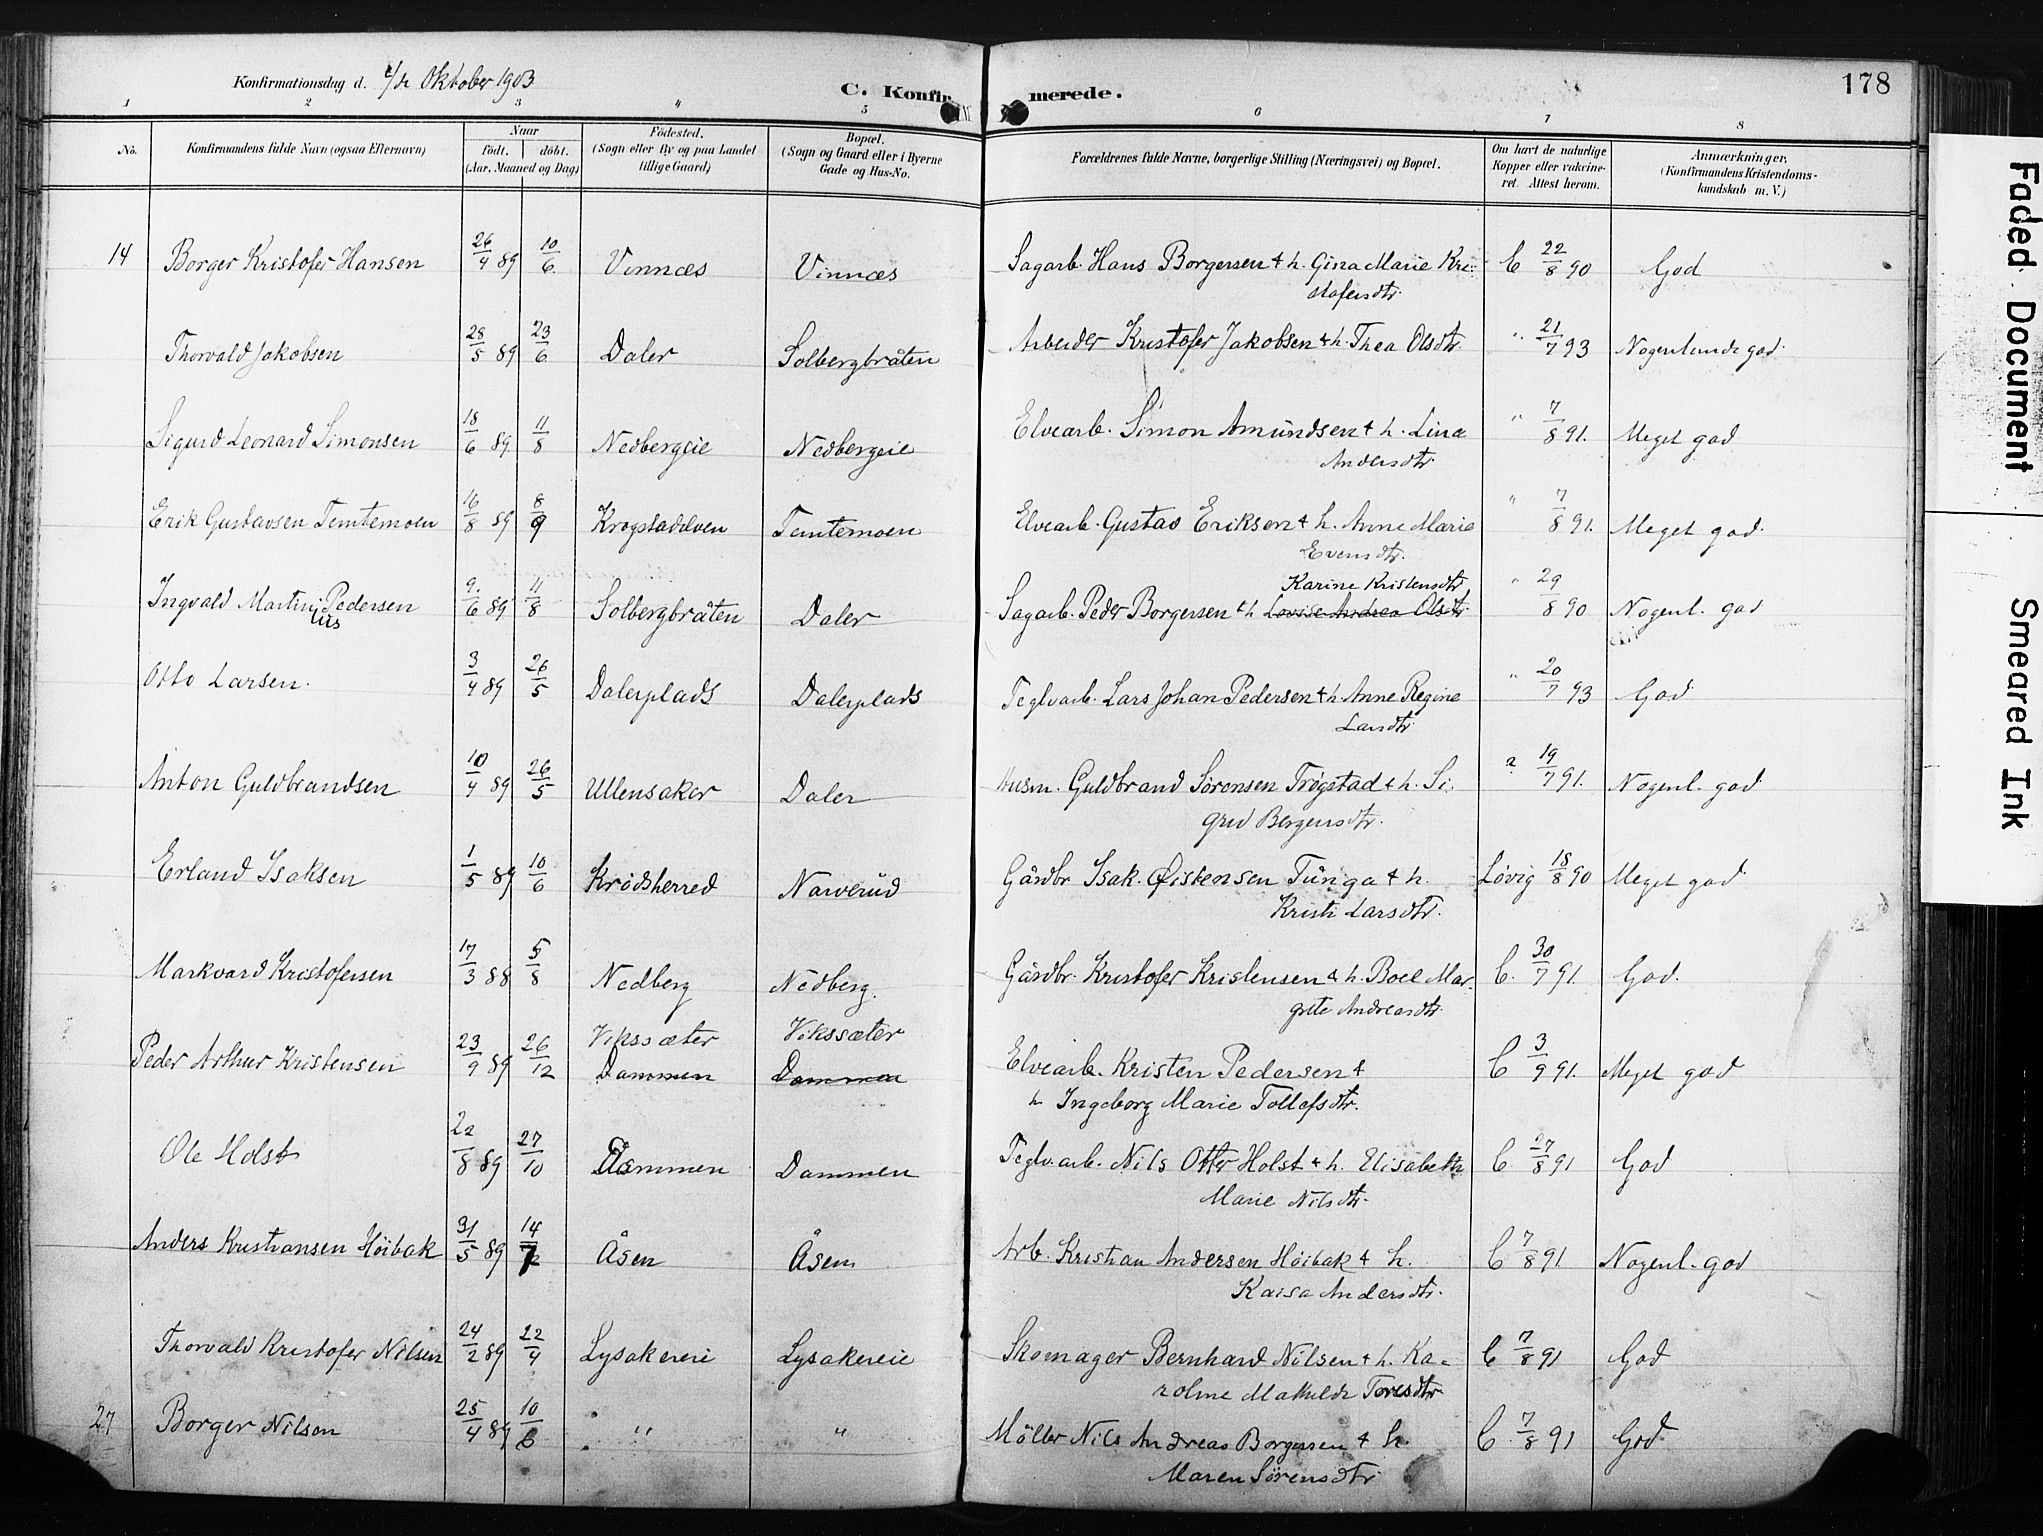 Konfirmationsdag d. 4/10 Oktober 1903
C. Konfirmerede.
178
1 2 3 4 5 6 7 8
No. | Konfirmandens fulde Navn (ogsaa Efternavn) | Naar født. døbt. (Aar, Maaned og Dag) | Fødested. (Sogn eller By og paa Landet tillige Gaard) | Bopæl. (Sogn og Gaard eller i Byerne Gade og Hus-No. | Forældrenes fulde Navne, borgerlige Stilling (Næringsvei) og Bopæl. | Om havt de naturlige Kopper eller vakcineret. Attest herom. | Anmærkninger, (Konfirmandens Kristendomskundskab m. V.)
14 Borger Kristofer Hansen 26/4 89 10/6 Vinnæs Vinnæs Sagarb. Hans Borgersen & h. Gina Marie Kri- C 22/8 90 God
stofersdtr.
Thorvald Jakobsen 28/5 89 23/6 Daler Solbergbråten Arbeider Kristofer Jakobsen & h. Thea Olsdtr. " 21/7 93 Nogenlunde god
Sigurd Leonard Simonsen 18/6 89 11/8 Nedbergeie Nedbergeie Elvearb. Simon Amundsen & h. Lina " 7/8 91. Meget god
Andersdtr.
Erik Gustavsen Temtemoen 16/8 89 8/9 Krogstadelven Temtemoen Elvearb. Gustav Eriksen & h. Anne Marie " 7/8 91. Meget god.
Evensdtr.
Karine Kristensdtr
Ingvald Martin Pedersen 9/6 89 11/8 Solbergbråten Daler Sagarb. Peder Borgersen & h Lovise Andrea Olsdtr " 29/8 90 Nogenl. god
ius
Otto Larsen. 3/4 89 26/5 Dalerplads Dalerplads Teglvarb. Lars Johan Pedersen & h. Anne Regine " 20/7 93 God
Larsdtr
Anton Guldbrandsen 10/4 89 26/5 Ullensaker Daler Husm. Guldbrand Sørensen Trøgstad & h. Si- " 19/7 91. Nogenl. god
grid Bergersdtr.
Erland Isaksen 1/5 89 10/6 Krødsherred Narverud Gårdbr Isak Øistensen Tunga & h. Løvig 18/8 90 Meget god
Kristi Larsdtr.
Markvard Kristofersen 17/3 88 5/8 Nedberg Nedberg. Gårdbr. Kristofer Kristensen & h. Boel Mar- C. 30/7 91. God.
grete Andreasdtr.
Vikssæter Vikssæter
Peder Arthur Kristensen 23/9 89 26/12 Dammen Dammen Elvearb. Kristen Pedersen & C 3/9 91. Meget god
h Ingeborg Marie Tollefsdtr.
Ole Holst 22/8 89 27/10 Dammen Teglv.arb. Nils Otter Holst & h. Elisabeth C. 27/8 91 God
Marie Nilsdtr.
Anders Kristiansen Høibak 31/5 89 14/7 Åsen Åsen Arb. Kristian Andersen Høibak & h. C 7/8 91 Nogenl. god
Kaisa Andersdtr.
Thorvald Kristofer Nilsen 24/2 89 22/4 Lysakereie Lysakereie Skomager Bernhard Nilsen & h. Ka- C 7/8 91 God
roline Mathilde Toresdtr
27 Borger Nilsen 25/4 89 10/6 " " Møller Nils Andreas Borgersen & h. C. 7/8 91 God
Maren Sörensdtr
Faded Document
Smeared Ink